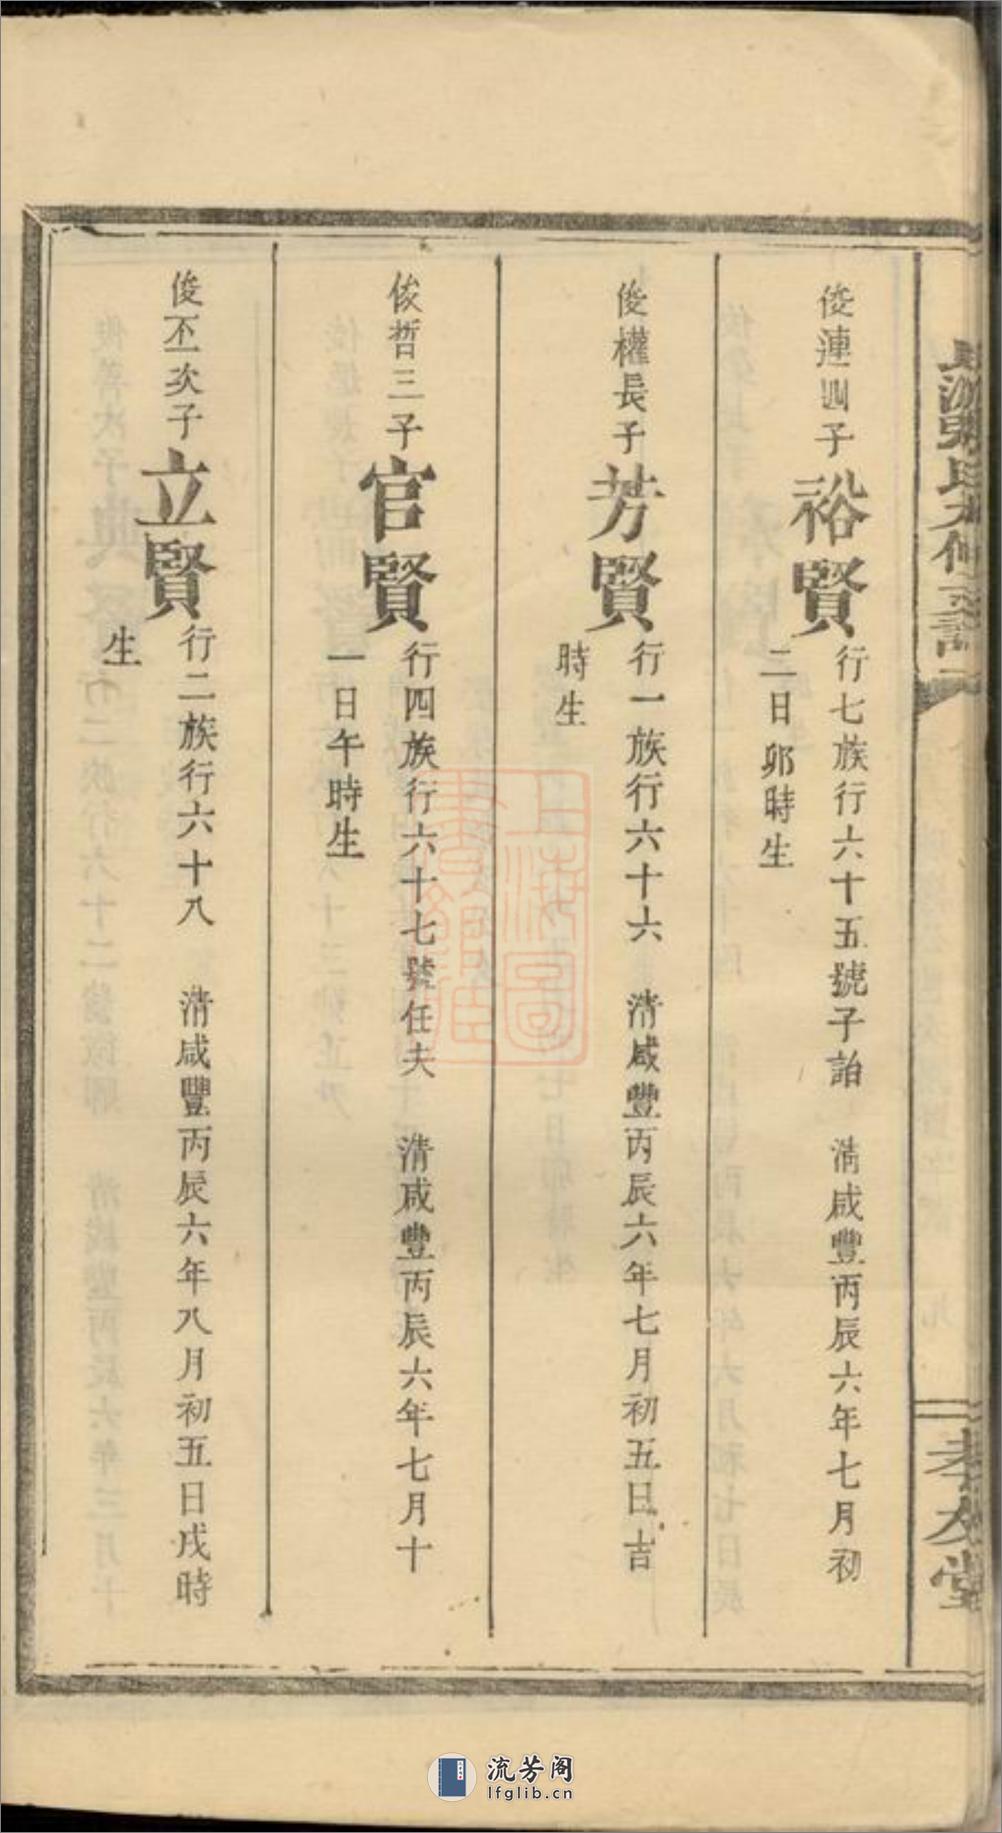 俊連四子
裕賢
行七族行六十五號子詒 清咸豐丙辰六年七月初
二日卯時生
俊權長子
芳賢
行一族行六十六 清咸豐丙辰六年七月初五日吉
時生
俊哲三子
官賢
行四族行六十七號任夫 清咸豐丙辰六年七月十
一日午時生
俊丕次子
立賢
行二族行六十八 清咸豐丙辰六年八月初五日戌時
生
孝友堂
上海圖書館藏
流芳阁
lfglib.cn